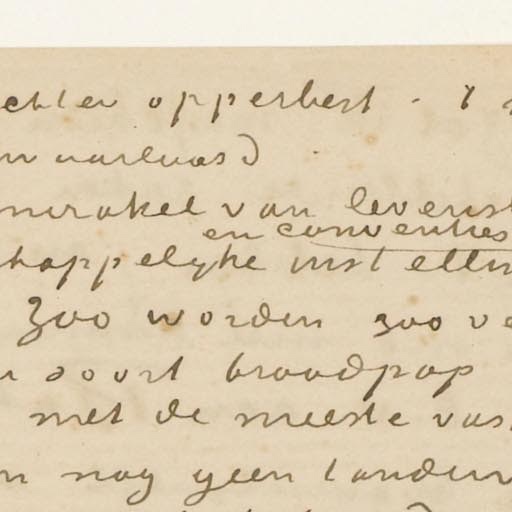 echter opperbest. 't
mirakel van levenst
en conventies
happelyke instellin
Zoo worden zoo ve
soort broodpap
met de meeste vas
nog geen tanden